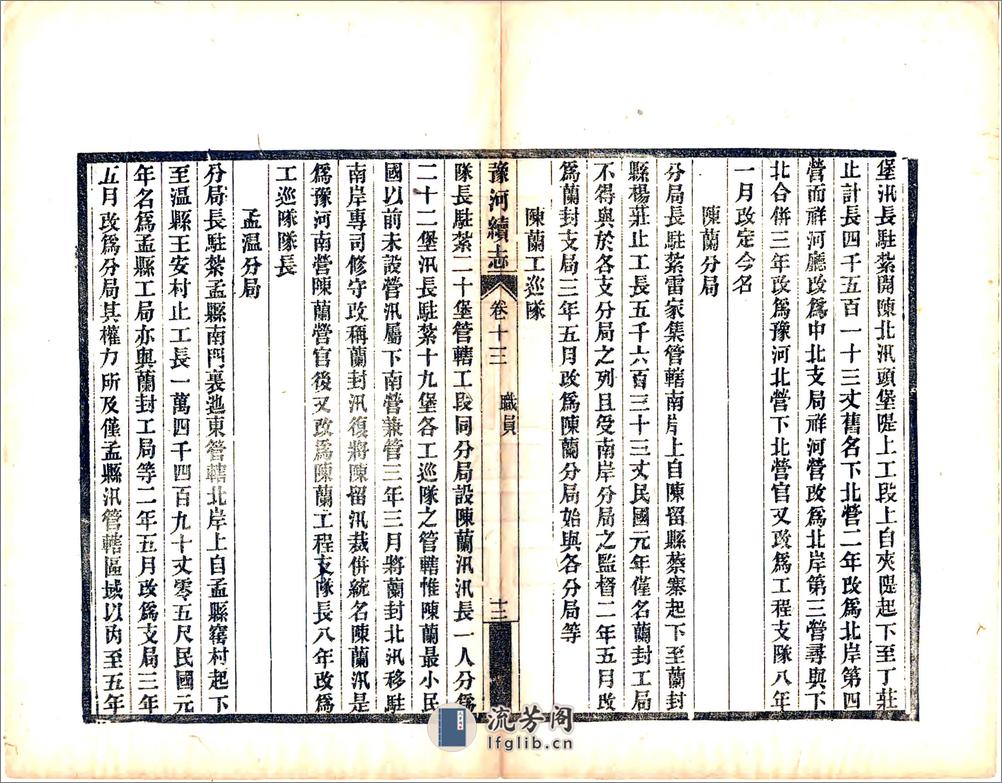 堡汛長駐紮開陳北汛頭堡隄上工段上自夾隄起下至丁莊
止計長四千五百一十三丈舊名下北營二年改爲北岸第四
營而祥河廳改爲中北支局祥河營改爲北岸第三營尋與下
北合併三年改爲豫河北營下北營官又改爲工程支隊八年
一月改定今名
陳蘭分局
分局長駐紮雷家集管轄南岸上自陳留縣蔡寨起下至蘭封
縣楊莊止工長五千六百三十三丈民國元年僅名蘭封工局
不得與於各支分局之列且受南岸分局之監督二年五月改
爲蘭封支局三年五月改爲陳蘭分局始與各分局等
陳蘭工巡隊
豫河續志
卷十三
職員
十三
隊長駐紮二十堡管轄工段同分局設陳蘭汛汛長一人分爲
二十二堡汛長駐紮十九堡各工巡隊之管轄惟陳蘭最小民
國以前未設營汛屬下南營兼管三年三月將蘭封北汛移駐
南岸專司修守改稱蘭封汛復將陳留汛裁併統名陳蘭汛是
爲豫河南營陳蘭營官後又改爲陳蘭工程支隊長八年改爲
工巡隊隊長
孟溫分局
分局長駐紮孟縣南門裏迆東管轄北岸上自孟縣窰村起下
至温縣王安村止工長一萬四千四百九十丈零五尺民國元
年名爲孟縣工局亦與蘭封工局等二年五月改爲支局三年
五月改爲分局其權力所及僅孟縣汛管轄區域以內至五年
流芳阁
lfglib.cn